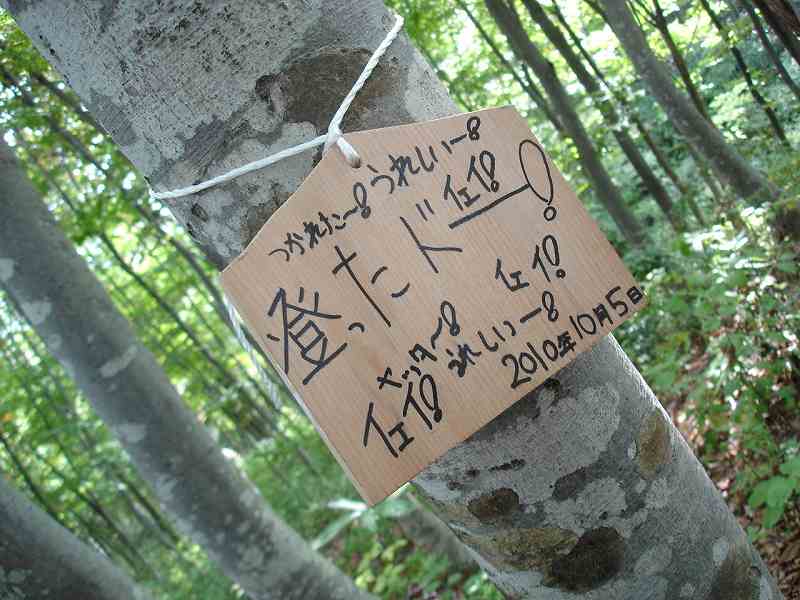 つかれたー!うれしいー!
イェイ!
登ったドー!
イェイ!
ヤッター!
うれしいー!
イェイ!
2010年10月5日